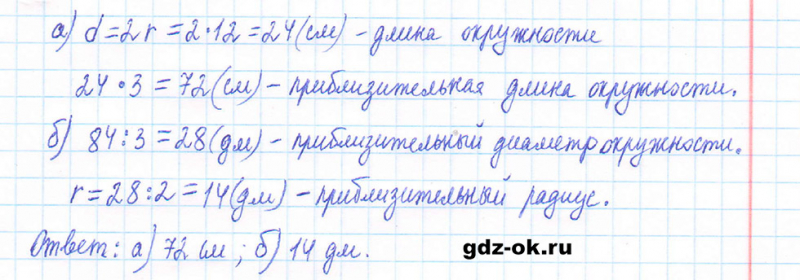 а) d=2r=2·12=24(см) - длина окружности
24·3=72(см) - приблизительная длина окружности.
б) 84:3=28(дм) - приблизительный диаметр окружности.
r=28:2=14(дм) - приблизительный радиус.
Ответ: а) 72 см; б) 14 дм.
gdz-ok.ru